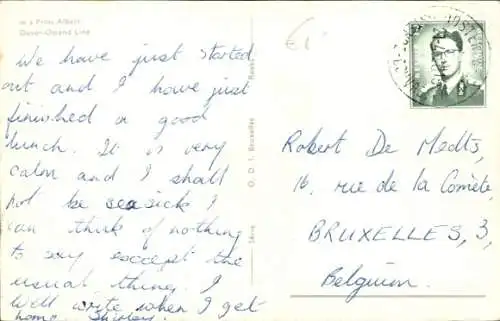 m s Prins Albert
Dover-Ostend Line
We have just started
out and I have just
finished a good
lunch. It is very
calm and I shall
not be seasick I
can think of nothing
to say except the
usual thing. I
will write when I get
home. Shirley.
O. D. I. Bruxelles
Robert De Medts,
16, rue de la Comète,
BRUXELLES, 3,
Belgium.